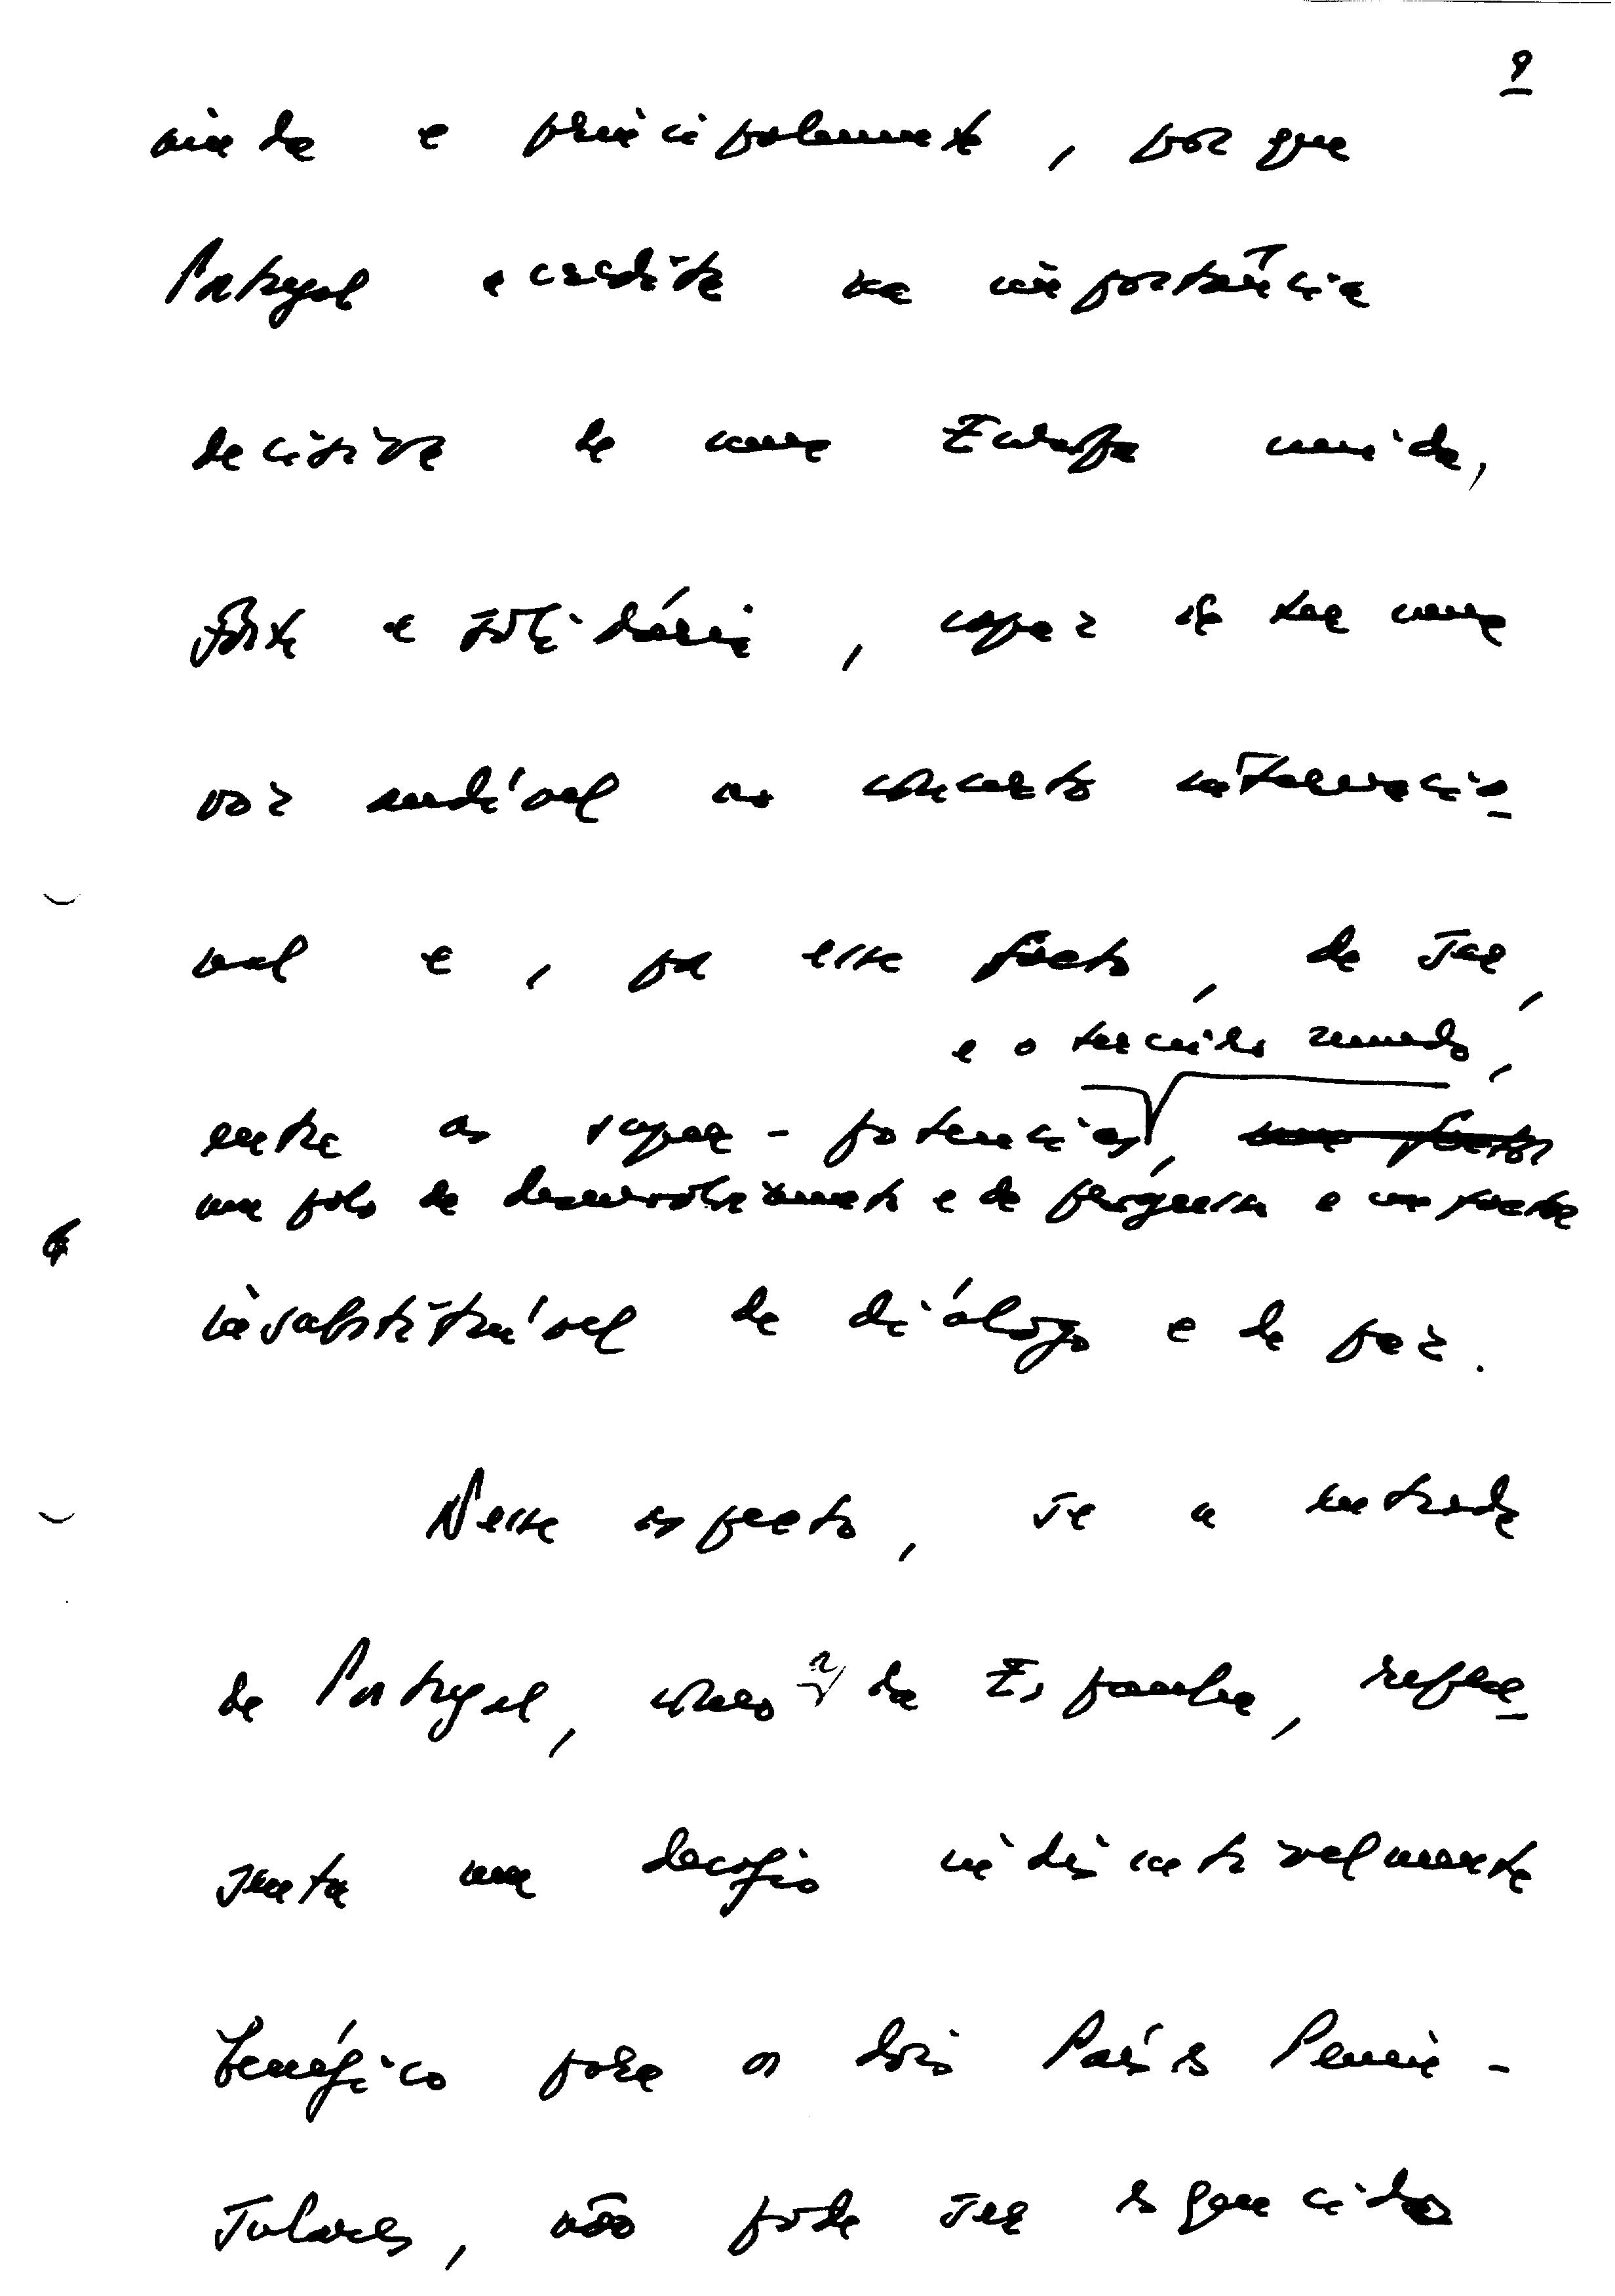 9
ainda e principalmente, porque
Portugal acredita na importância
decisiva de uma Europa unida,
forte e solidária, capaz de ter uma
voz audível no concerto internacio-
nal e, por esse facto, de ser,
e o terceiro mundo,
entre as super-potencias, um factor
um polo de desenvolvimento e de progresso e um factor
insubstituível de diálogo e de paz.
Nesse aspecto, se a entrada
de Portugal, como a da Espanha, repre-
senta um desafio indiscutivelmente
benéfico para os dois Países Penin-
sulares, não pode ser esquecido